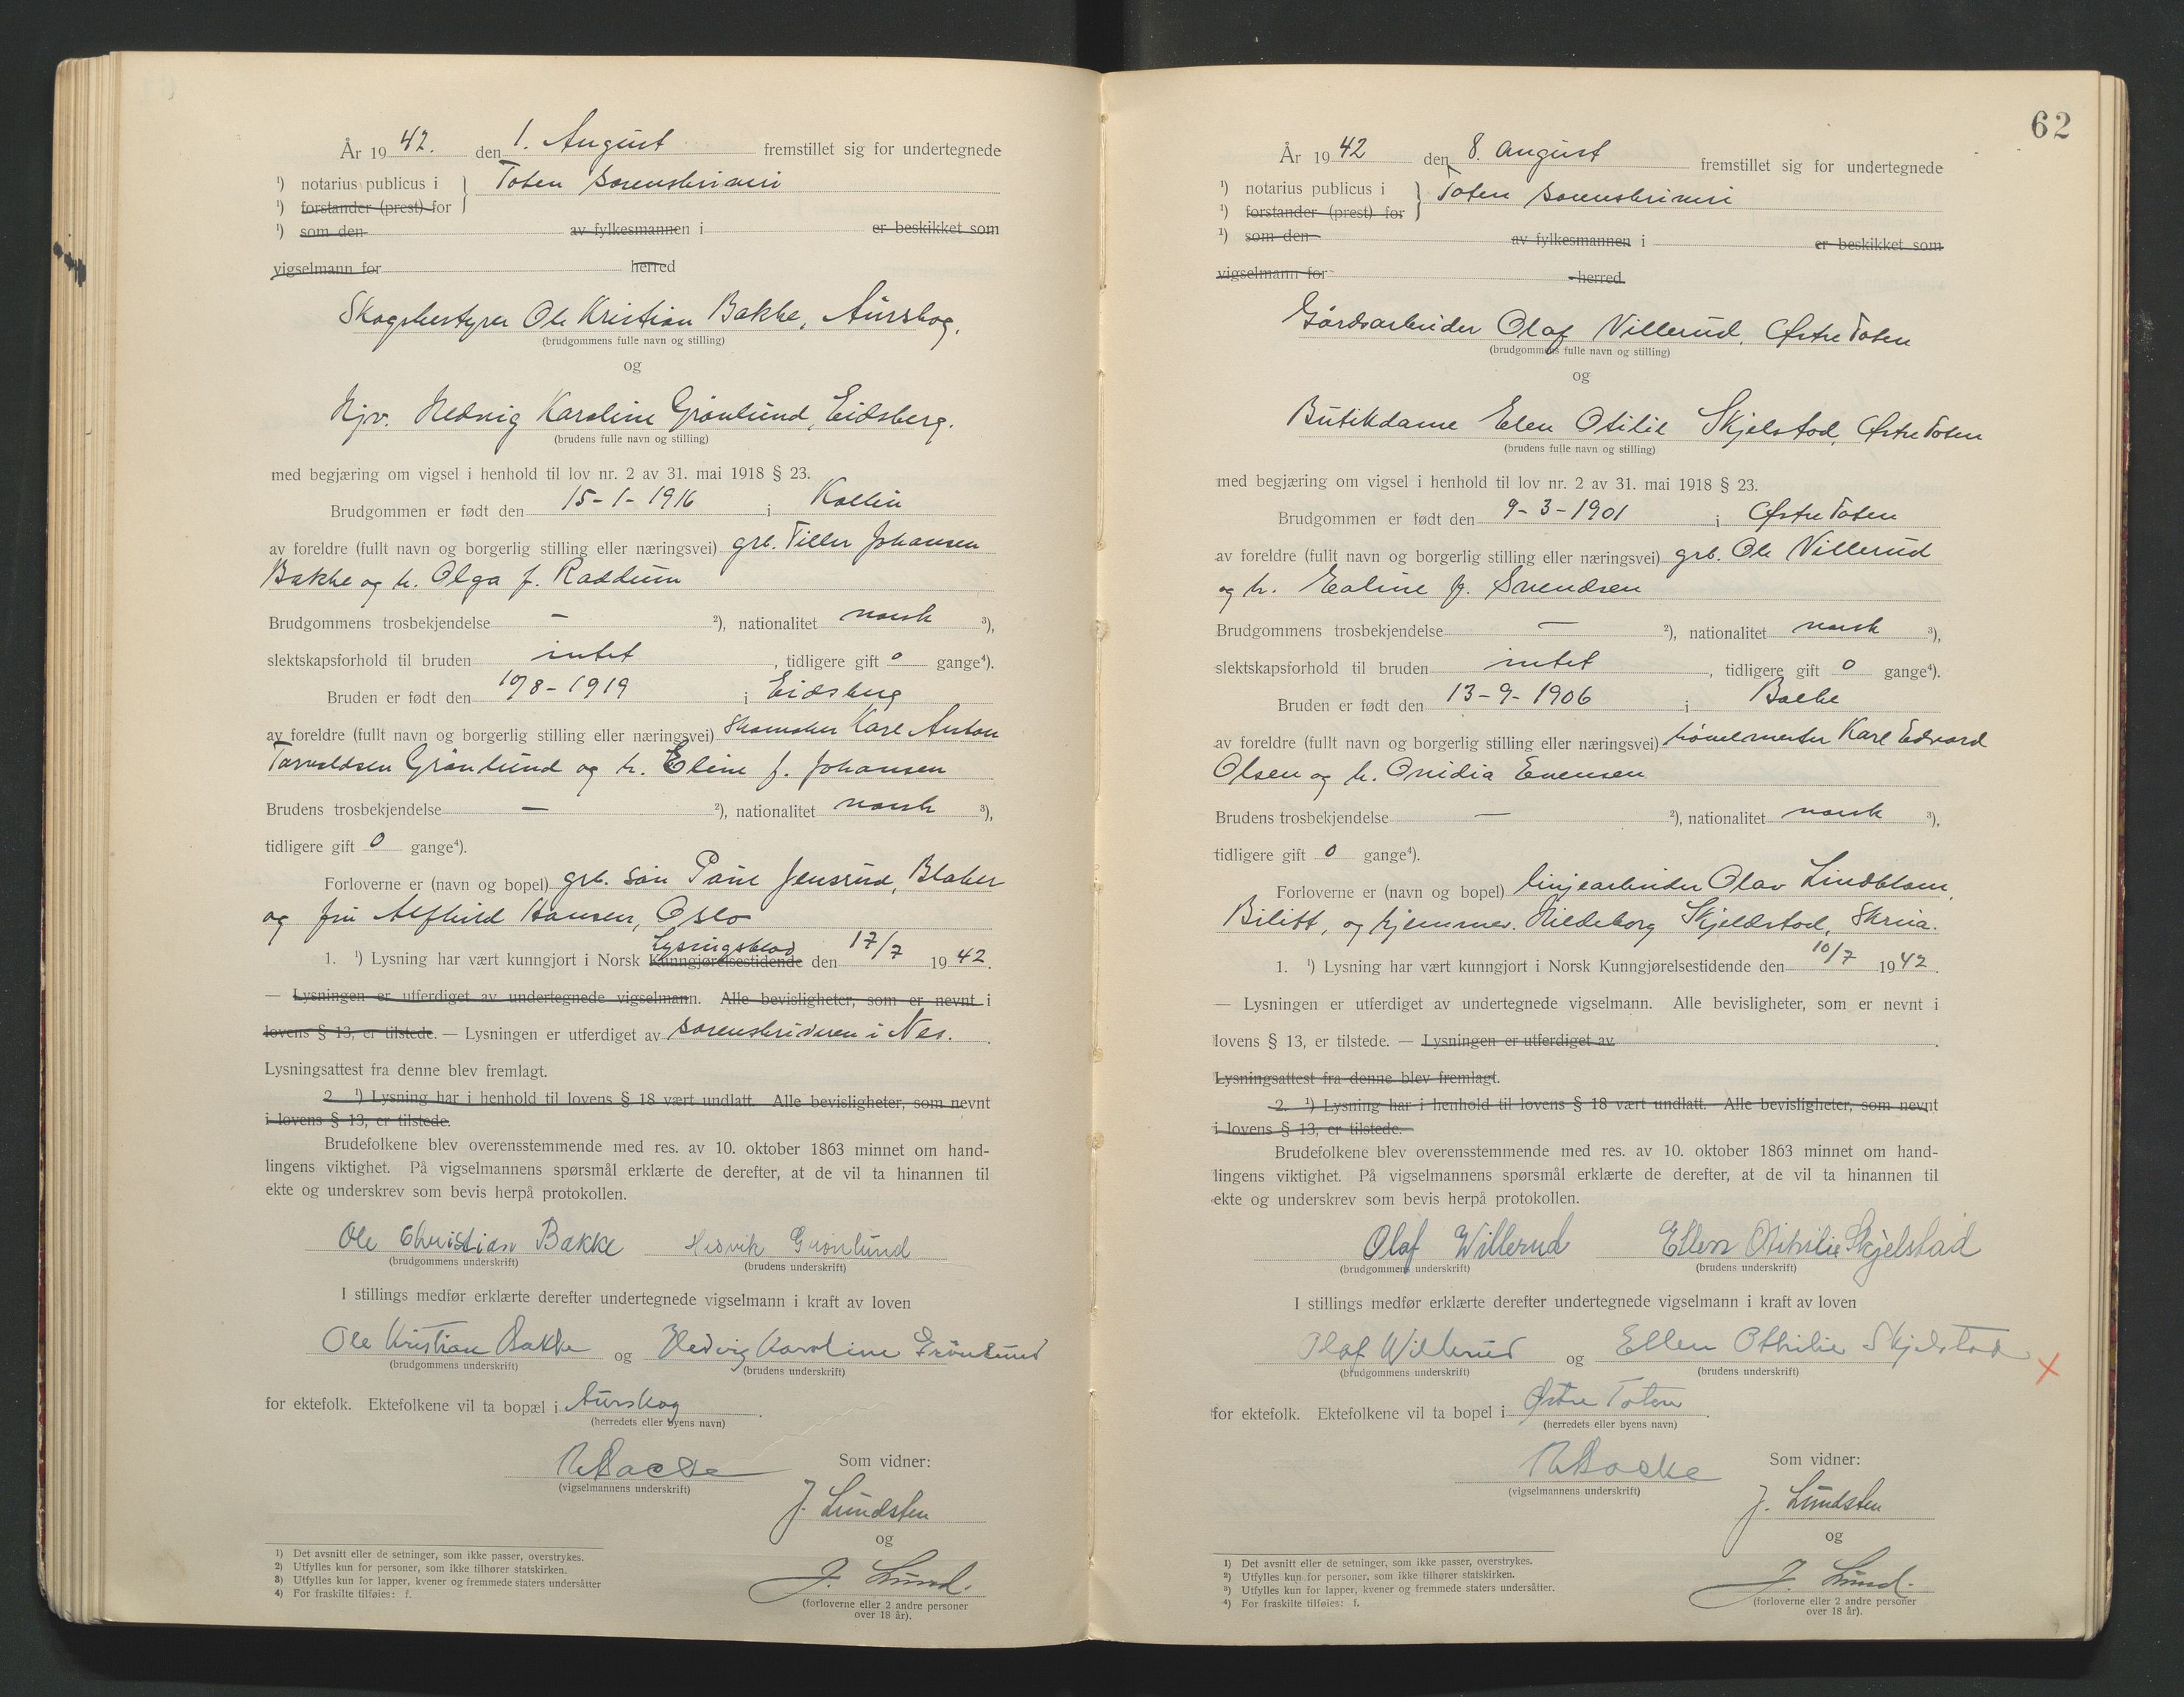 År 1942. den 1. August fremstillet sig for undertegnede
¹) notarius publicus i } Toten sorenskriveri
¹) forstander (prest) for
¹) som den av fylkesmannen i er beskikket som
vigselmann for herred
Skogbestyrer Ole Kristian Bakke, Aurskog.
(brudgommens fulle navn og stilling)
og
Hjv. Hedvig Karoline Grønlund, Eidsberg.
(brudens fulle navn og stilling)
med begjæring om vigsel i henhold til lov nr. 2 av 31. mai 1918 § 23.
Brudgommen er født den 15-1-1916 i Kolbu
av foreldre (fullt navn og borgerlig stilling eller næringsvei) grb. Johansen
Bakke og h. Olga f. Raddum
Brudgommens trosbekjendelse — ²), nationalitet norsk ³),
slektskapsforhold til bruden intet, tidligere gift 0 gange⁴).
Bruden er født den 10/8-1919 i Eidsberg
av foreldre (fullt navn og borgerlig stilling eller næringsvei) Skomaker Karl Anton
Torvaldsen Grønlund og h. Eline f. Johansen
Brudens trosbekjendelse — ²), nationalitet norsk ³),
tidligere gift 0 gange⁴).
Forloverne er (navn og bopel) grb. søn Jensrud, Blaker
og fru Alfhild Hansen, Oslo
Lysningsblad
1. ¹) Lysning har vært kunngjort i Norsk Kunngjørelsestidende den 17/7 1942.
— Lysningen er utferdiget av undertegnede vigselmann. Alle bevisligheter, som er nevnt i
lovens § 13, er tilstede. — Lysningen er utferdiget av sorenskriveren i Nes.
Lysningsattest fra denne blev fremlagt.
2. ¹) Lysning har i henhold til lovens § 18 vært undlatt. Alle bevisligheter, som nevnt
i lovens § 13, er tilstede.
Brudefolkene blev overensstemmende med res. av 10. oktober 1863 minnet om hand-
lingens viktighet. På vigselmannens spørsmål erklærte de derefter, at de vil ta hinannen til
ekte og underskrev som bevis herpå protokollen.
Ole Christian Bakke Hedvik Grønlund
(brudgommens underskrift) (brudens underskrift)
I stillings medfør erklærte derefter undertegnede vigselmann i kraft av loven
Ole Kristian Bakke og Hedvig Karoline Grønlund
(brudgommens underskrift) (brudens underskrift)
for ektefolk. Ektefolkene vil ta bopæl i Aurskog.
(herredets eller byens navn)
Som vidner:
(vigselmannens underskrift)
J. Lundsten
og
J. Lund.
(forloverne eller 2 andre personer
over 18 år).
1) Det avsnitt eller de setninger, som ikke passer, overstrykes.
2) Utfylles kun for personer, som ikke tilhører statskirken.
3) Utfylles kun for lapper, kvener og fremmede staters undersåtter
4) For fraskilte tilføies: f.
62
År 1942 den 8. august fremstillet sig for undertegnede
¹) notarius publicus i } Toten sorenskriveri
¹) forstander (prest) for
¹) som den av fylkesmannen i er beskikket som
vigselmann for herred.
Gårdsarbeider Olaf Villerud, Østre Toten
(brudgommens fulle navn og stilling)
og
Butikdame Elen Otilie Skjelstad, Østre Toten
(brudens fulle navn og stilling)
med begjæring om vigsel i henhold til lov nr. 2 av 31. mai 1918 § 23.
Brudgommen er født den 9-3-1901 i Østre Toten
av foreldre (fullt navn og borgerlig stilling eller næringsvei) grb. Ole Villerud
og h. f. Svendsen
Brudgommens trosbekjendelse — ²), nationalitet norsk ³),
slektskapsforhold til bruden intet, tidligere gift 0 gange⁴).
Bruden er født den 13-9-1906 i Balke
av foreldre (fullt navn og borgerlig stilling eller næringsvei) Karl Edvard
Olsen og h. Ovidia Evensen
Brudens trosbekjendelse — ²), nationalitet norsk ³),
tidligere gift 0 gange⁴).
Forloverne er (navn og bopel) linjearbeider Olav Lindblom,
Bilitt, og hjemmev. Hildeborg Skjeldstad, Skreia.
1. ¹) Lysning har vært kunngjort i Norsk Kunngjørelsestidende den 10/7 1942.
— Lysningen er utferdiget av undertegnede vigselmann. Alle bevisligheter, som er nevnt i
lovens § 13, er tilstede. — Lysningen er utferdiget av.
Lysningsattest fra denne blev fremlagt.
2. ¹) Lysning har i henhold til lovens § 18 vært undlatt. Alle bevisligheter, som nevnt
i lovens § 13, er tilstede.
Brudefolkene blev overensstemmende med res. av 10. oktober 1863 minnet om hand-
lingens viktighet. På vigselmannens spørsmål erklærte de derefter, at de vil ta hinannen til
ekte og underskrev som bevis herpå protokollen.
Olaf Willerud Ellen Othilie Skjelstad
(brudgommens underskrift) (brudens underskrift)
I stillings medfør erklærte derefter undertegnede vigselmann i kraft av loven
Olaf Willerud og Ellen Othilie Skjelstad
(brudgommens underskrift) (brudens underskrift)
for ektefolk. Ektefolkene vil ta bopel i Østre Toten.
(herredets eller byens navn)
Som vidner:
(vigselmannens underskrift)
J. Lundsten
og
J. Lund.
(forloverne eller 2 andre personer
over 18 år).
1) Det avsnitt eller de setninger, som ikke passer, overstrykes.
2) Utfylles kun for personer, som ikke tilhører statskirken.
3) Utfylles kun for lapper, kvener og fremmede staters undersåtter.
4) For fraskilte tilføies: f.